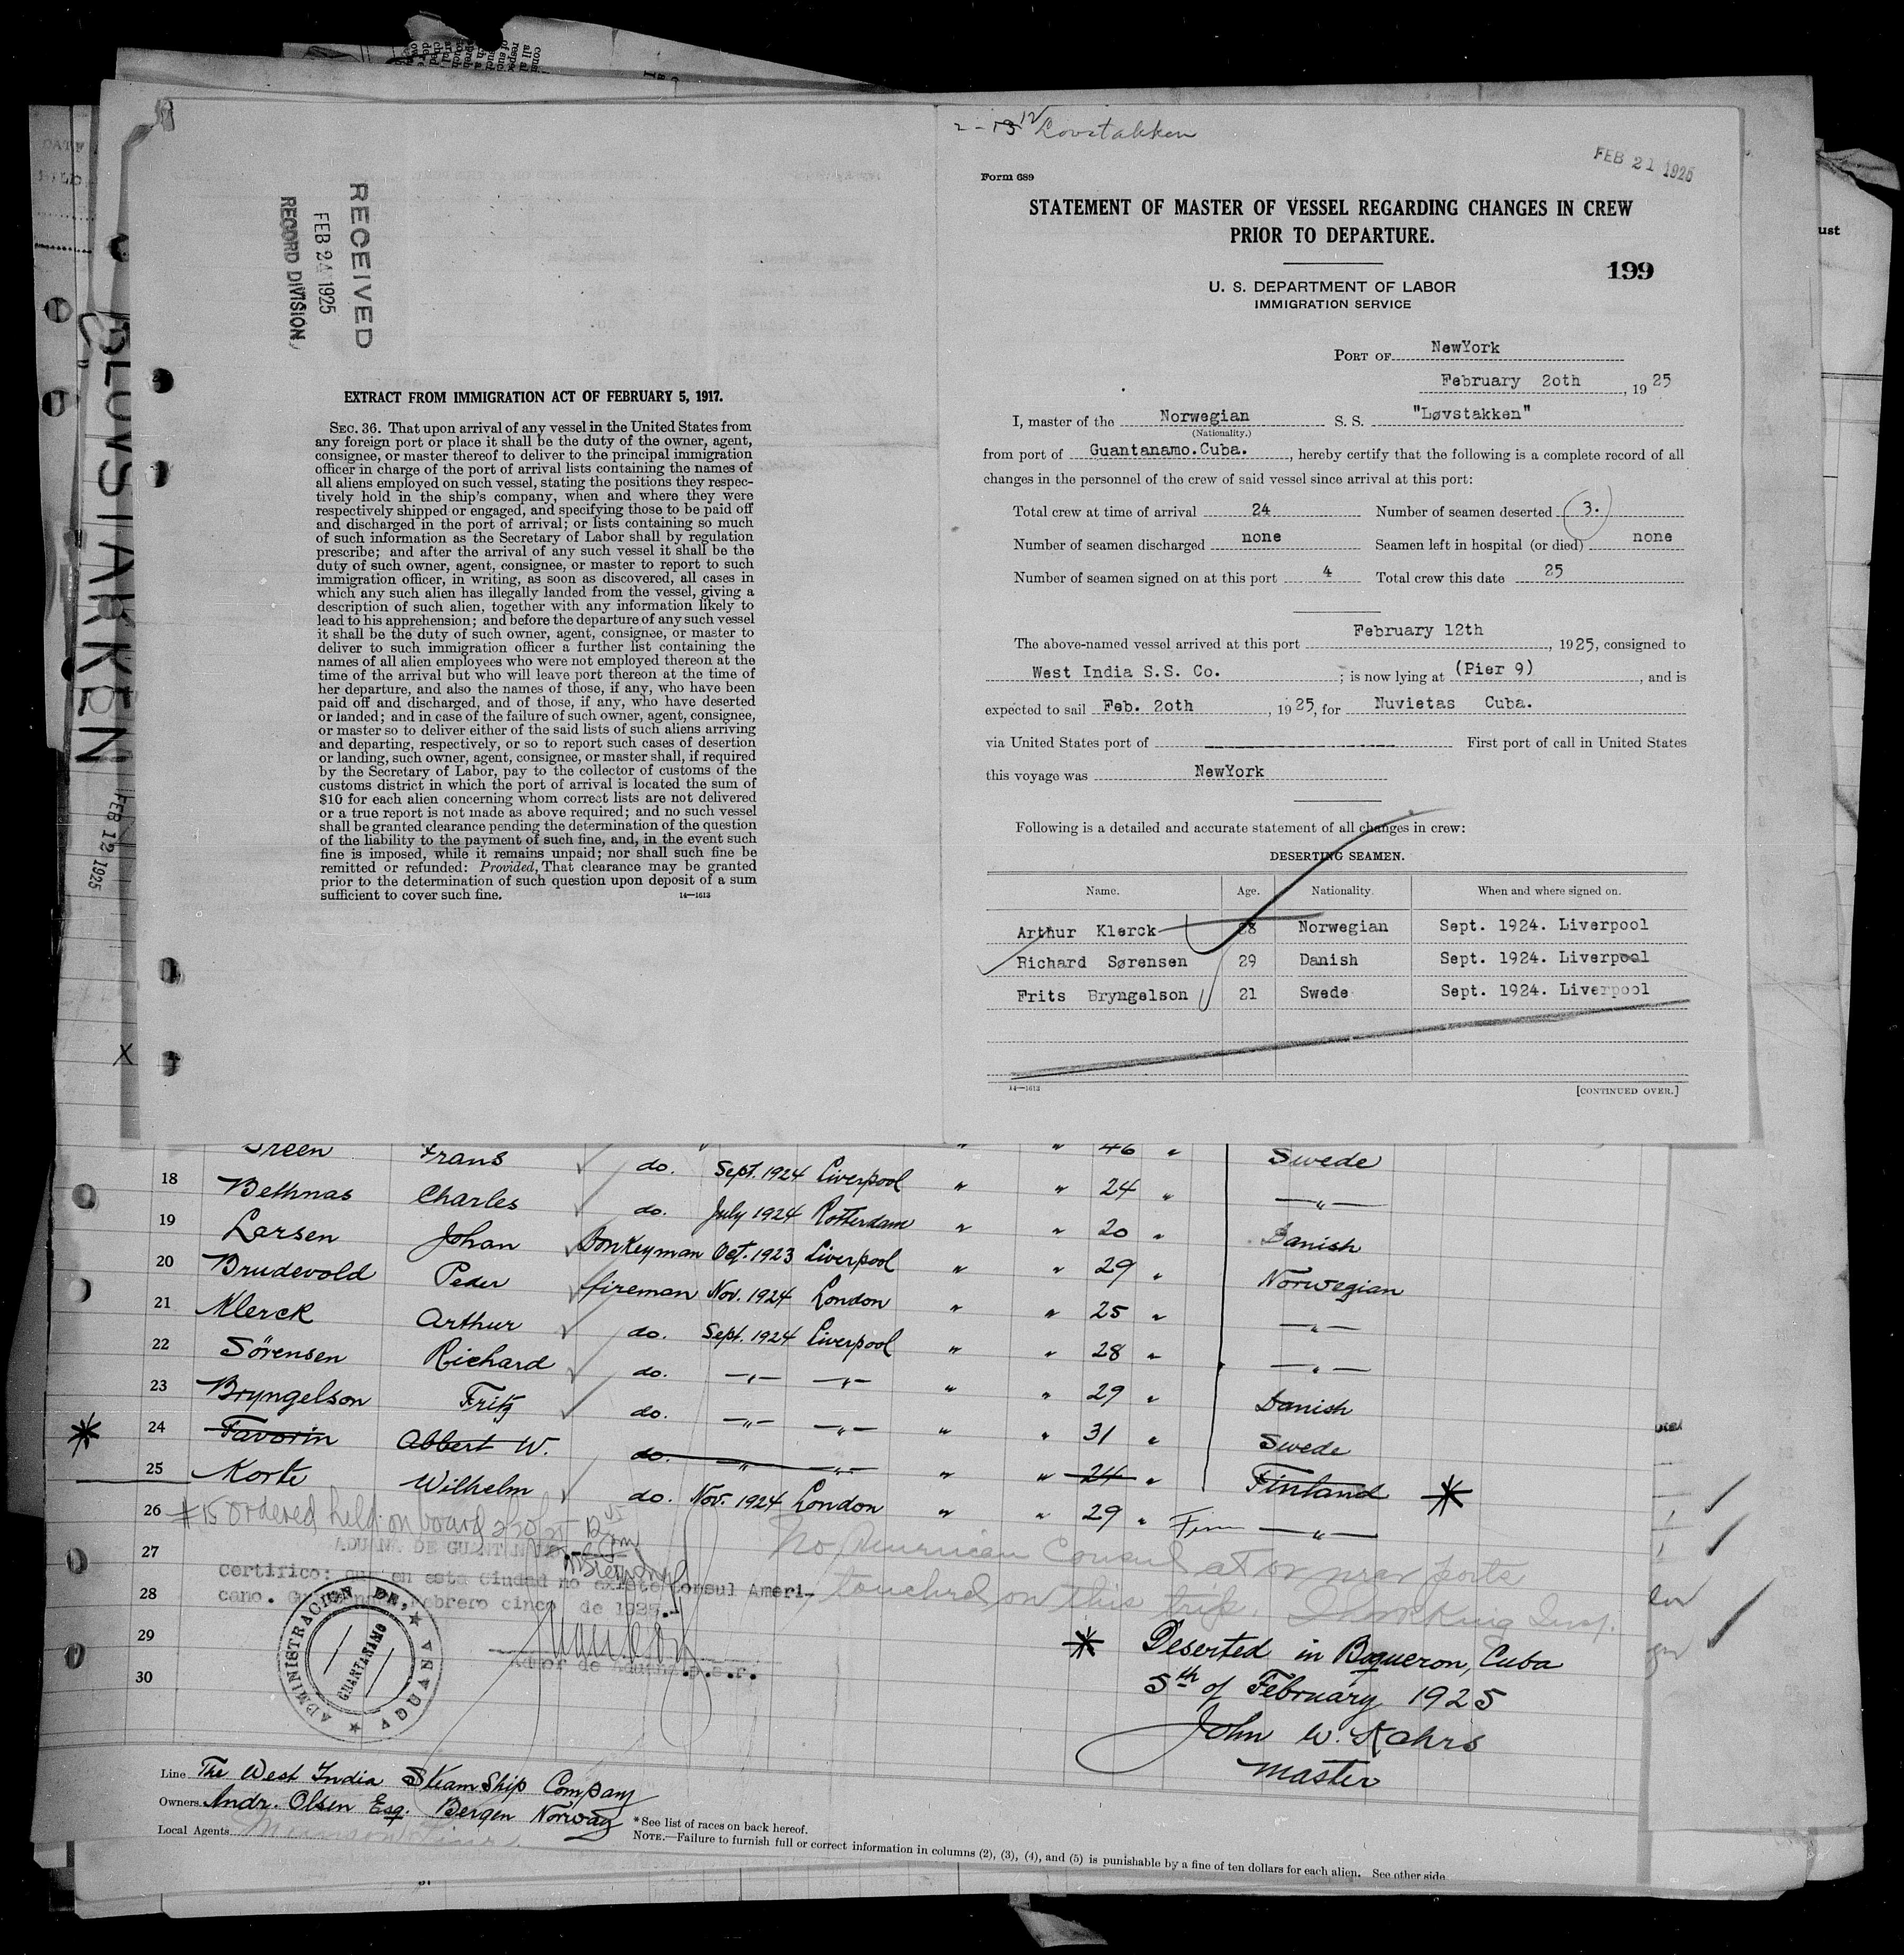 2-13 12 Lovstakken
FEB 21 1925
Form 689
STATEMENT OF MASTER OF VESSEL REGARDING CHANGES IN CREW
PRIOR TO DEPARTURE.
199
U. S. DEPARTMENT OF LABOR
IMMIGRATION SERVICE
PORT OF NewYork
February 2oth, 1925
I, master of the Norwegian S. S. "Løvstakken"
(Nationality.)
from port of Guantanamo.Cuba., hereby certify that the following is a complete record of all
changes in the personnel of the crew of said vessel since arrival at this port:
Total crew at time of arrival 24 Number of seamen deserted 3.
Number of seamen discharged none Seamen left in hospital (or died) none
Number of seamen signed on at this port 4 Total crew this date 25
The above-named vessel arrived at this port February 12th, 1925, consigned to
West India S.S. Co. ; is now lying at (Pier 9), and is
expected to sail Feb. 2oth, 1925, for Nuvietas Cuba.
via United States port of First port of call in United States
this voyage was NewYork
Following is a detailed and accurate statement of all changes in crew:
DESERTING SEAMEN.
Name. Age. Nationality. When and where signed on.
Arthur Klerck 28 Norwegian Sept. 1924. Liverpool
Richard Sørensen 29 Danish Sept. 1924. Liverpool
Frits Bryngelson 21 Swede Sept. 1924. Liverpool
14—1613
[CONTINUED OVER.]
RECEIVED
FEB 24 1925
RECORD DIVISION
EXTRACT FROM IMMIGRATION ACT OF FEBRUARY 5, 1917.
SEC. 36. That upon arrival of any vessel in the United States from
any foreign port or place it shall be the duty of the owner, agent,
consignee, or master thereof to deliver to the principal immigration
officer in charge of the port of arrival lists containing the names of
all aliens employed on such vessel, stating the positions they respec-
tively hold in the ship's company, when and where they were
respectively shipped or engaged, and specifying those to be paid off
and discharged in the port of arrival; or lists containing so much
of such information as the Secretary of Labor shall by regulation
prescribe; and after the arrival of any such vessel it shall be the
duty of such owner, agent, consignee, or master to report to such
immigration officer, in writing, as soon as discovered, all cases in
which any such alien has illegally landed from the vessel, giving a
description of such alien, together with any information likely to
lead to his apprehension; and before the departure of any such vessel
it shall be the duty of such owner, agent, consignee, or master to
deliver to such immigration officer a further list containing the
names of all alien employees who were not employed thereon at the
time of the arrival but who will leave port thereon at the time of
her departure, and also the names of those, if any, who have been
paid off and discharged, and of those, if any, who have deserted
or landed; and in case of the failure of such owner, agent, consignee,
or master so to deliver either of the said lists of such aliens arriving
and departing, respectively, or so to report such cases of desertion
or landing, such owner, agent, consignee, or master shall, if required
by the Secretary of Labor, pay to the collector of customs of the
customs district in which the port of arrival is located the sum of
$10 for each alien concerning whom correct lists are not delivered
or a true report is not made as above required; and no such vessel
shall be granted clearance pending the determination of the question
of the liability to the payment of such fine, and, in the event such
fine is imposed, while it remains unpaid; nor shall such fine be
remitted or refunded: Provided, That clearance may be granted
prior to the determination of such question upon deposit of a sum
sufficient to cover such fine. 14—1613
LOVSTAKKEN
FEB 12 1925
Green Frans do. Sept. 1924 Liverpool " " 46 " Swede
18 Bethnas Charles do. July 1924 Rotterdam " " 24 " —"—
19 Larsen Johan Donkeyman Oct. 1923 Liverpool " " 20 " Danish
20 Brudevold Peder fireman Nov. 1924 London " " 29 " Norwegian
21 Klerck Arthur do. Sept. 1924 Liverpool " " 25 " —"—
22 Sörensen Richard do. —"— —"— " " 28 " —"—
23 Bryngelson Fritz do. —"— —"— " " 29 " Danish
24 Favorin Abbert W. do. " —"— " " 31 " Swede
25 Korte Wilhelm do. Nov. 1924 London " " 24 " Finland
26 #15 Ordered held on board 29 " Finn —"—
27 ADUANA DE GUANTANAMO
No American Consul at or near ports
Certifico: que en esta ciudad no existe Consul Ameri-
28 touched on this trip. Insp.
cano. Guantanamo Febrero cinco de 1925.
29
30
ADMINISTRACION DE ADUANA
GUANTANAMO
Deserted in Boqueron, Cuba
5th of February 1925
John W. Kahrs
Master
Line The West India SteamShip Company
Owners Andr. Olsen Esq. Bergen Norway
Local Agents Munson Line
*See list of races on back hereof.
NOTE.—Failure to furnish full or correct information in columns (2), (3), (4), and (5) is punishable by a fine of ten dollars for each alien. See other side